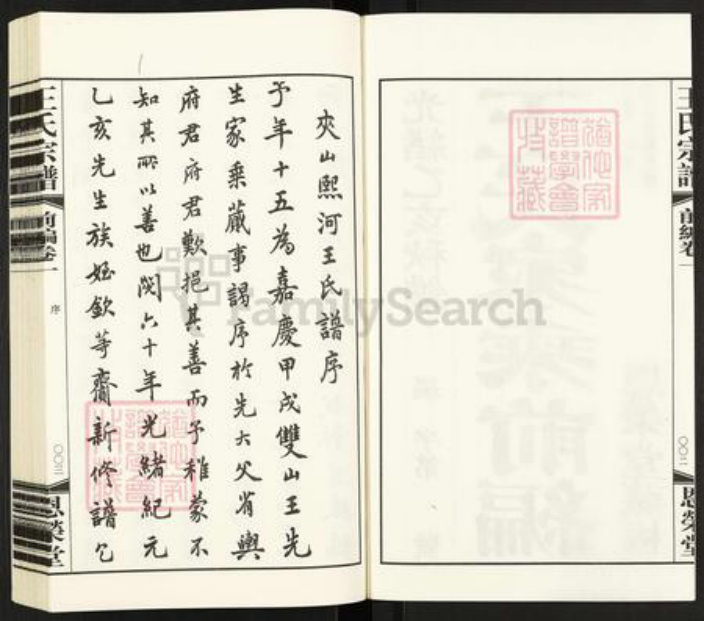 王氏宗譜
前編卷一
〇〇二
恩榮堂
夾山熙河王氏譜序
予年十五為嘉慶甲戌雙山王先
生家乘蕆事謁序於先大父省輿
府君府君歎挹其善而予稚蒙不
知其所以善也閱六十年光緒紀元
乙亥先生族姪欽等齎新修譜乞
王氏宗譜
前編卷一
序
〇〇三
恩榮堂
FamilySearch